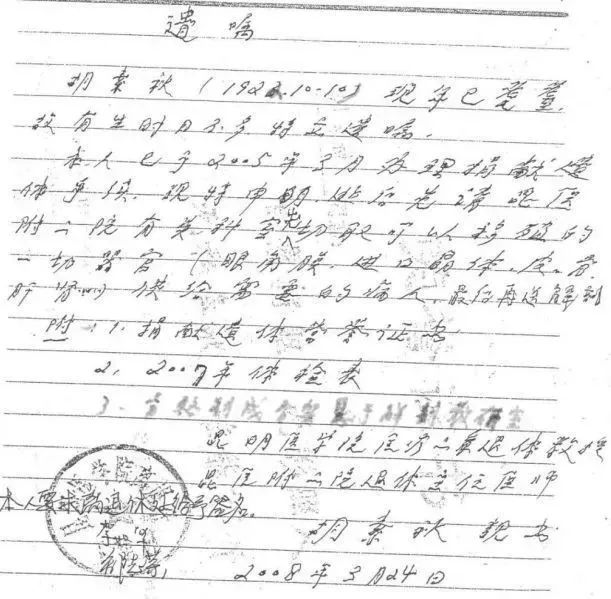 遗嘱
胡素秋(1922.10.10)现年已耄耋,
故有生时月不多特立遗嘱。
本人已于2005年3月办理捐献遗
体手续,现特申明,此后先请昆医
附二院有关科室先切取可以移植的
一切器官(眼角膜、进口晶体、皮、骨、
肝肾…)供给需要的病人,最后再送解剖
附:1.捐献遗体荣誉证书
2.2007年体检表
3.
昆明医学院医疗二系退休教授
昆医附二院退休主任医师
本人要求离退休处给予签名。
胡素秋 亲书
2008年3月24日